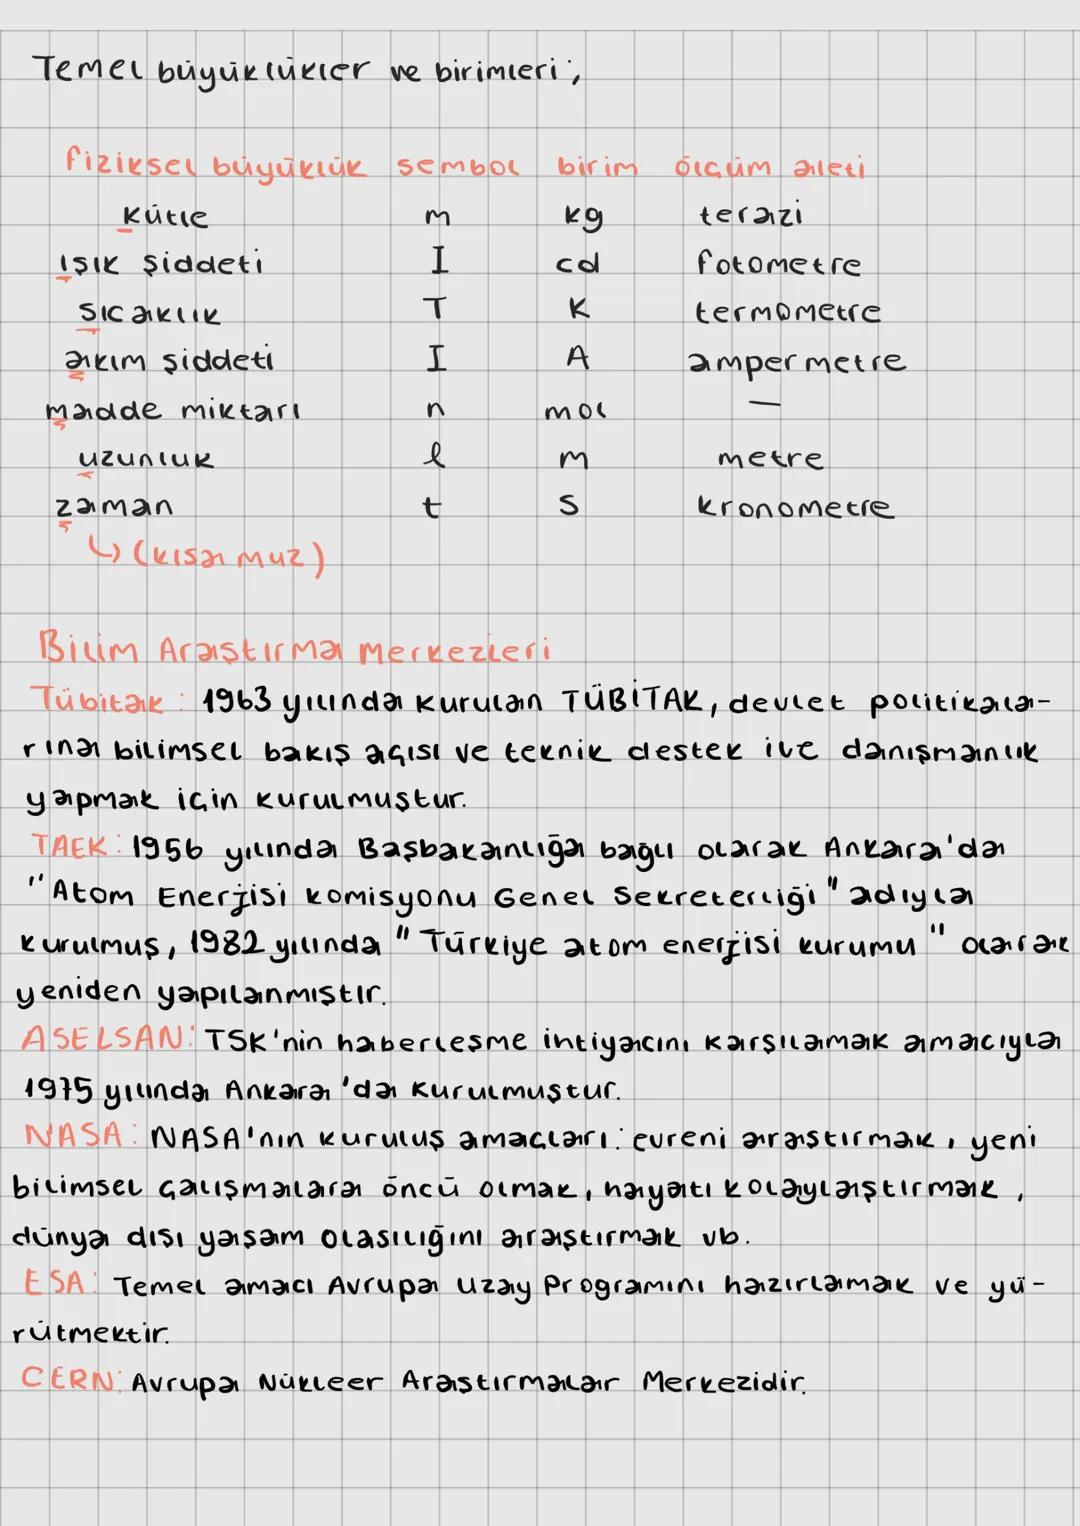 Temel büyüklükler ve birimleri;
fiziksel büyüklük sembol birim ölçüm aleti
kütle m kg terazi
ışık şiddeti I cd fotometre
sıcaklık T K termometre
akım şiddeti I A ampermetre
madde miktarı n mol —
uzunluk l m metre
zaman t s kronometre
↳ (kısa muz)
Bilim Araştırma Merkezleri
Tübitak: 1963 yılında kurulan TÜBİTAK, devlet politikala-
rına bilimsel bakış açısı ve teknik destek ile danışmanlık
yapmak için kurulmuştur.
TAEK: 1956 yılında Başbakanlığa bağlı olarak Ankara'da
"Atom Enerjisi komisyonu Genel Sekreterliği" adıyla
kurulmuş, 1982 yılında "Türkiye atom enerjisi kurumu" olarak
yeniden yapılanmıştır.
ASELSAN: TSK'nin haberleşme intiyacını karşılamak amacıyla
1975 yılında Ankara'da kurulmuştur.
NASA: NASA'nın kuruluş amaçları: evreni araştırmak, yeni
bilimsel çalışmalara öncü olmak, hayatı kolaylaştırmak,
dünya dışı yaşam olasılığını araştırmak vb.
ESA: Temel amacı Avrupa Uzay Programını hazırlamak ve yü-
rütmektir.
CERN: Avrupa Nükleer Araştırmalar Merkezidir.